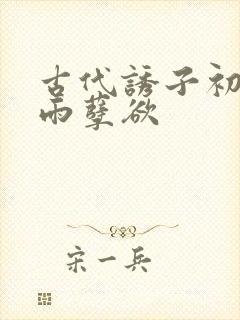 古代誘子初
雨孽欲
宋一兵